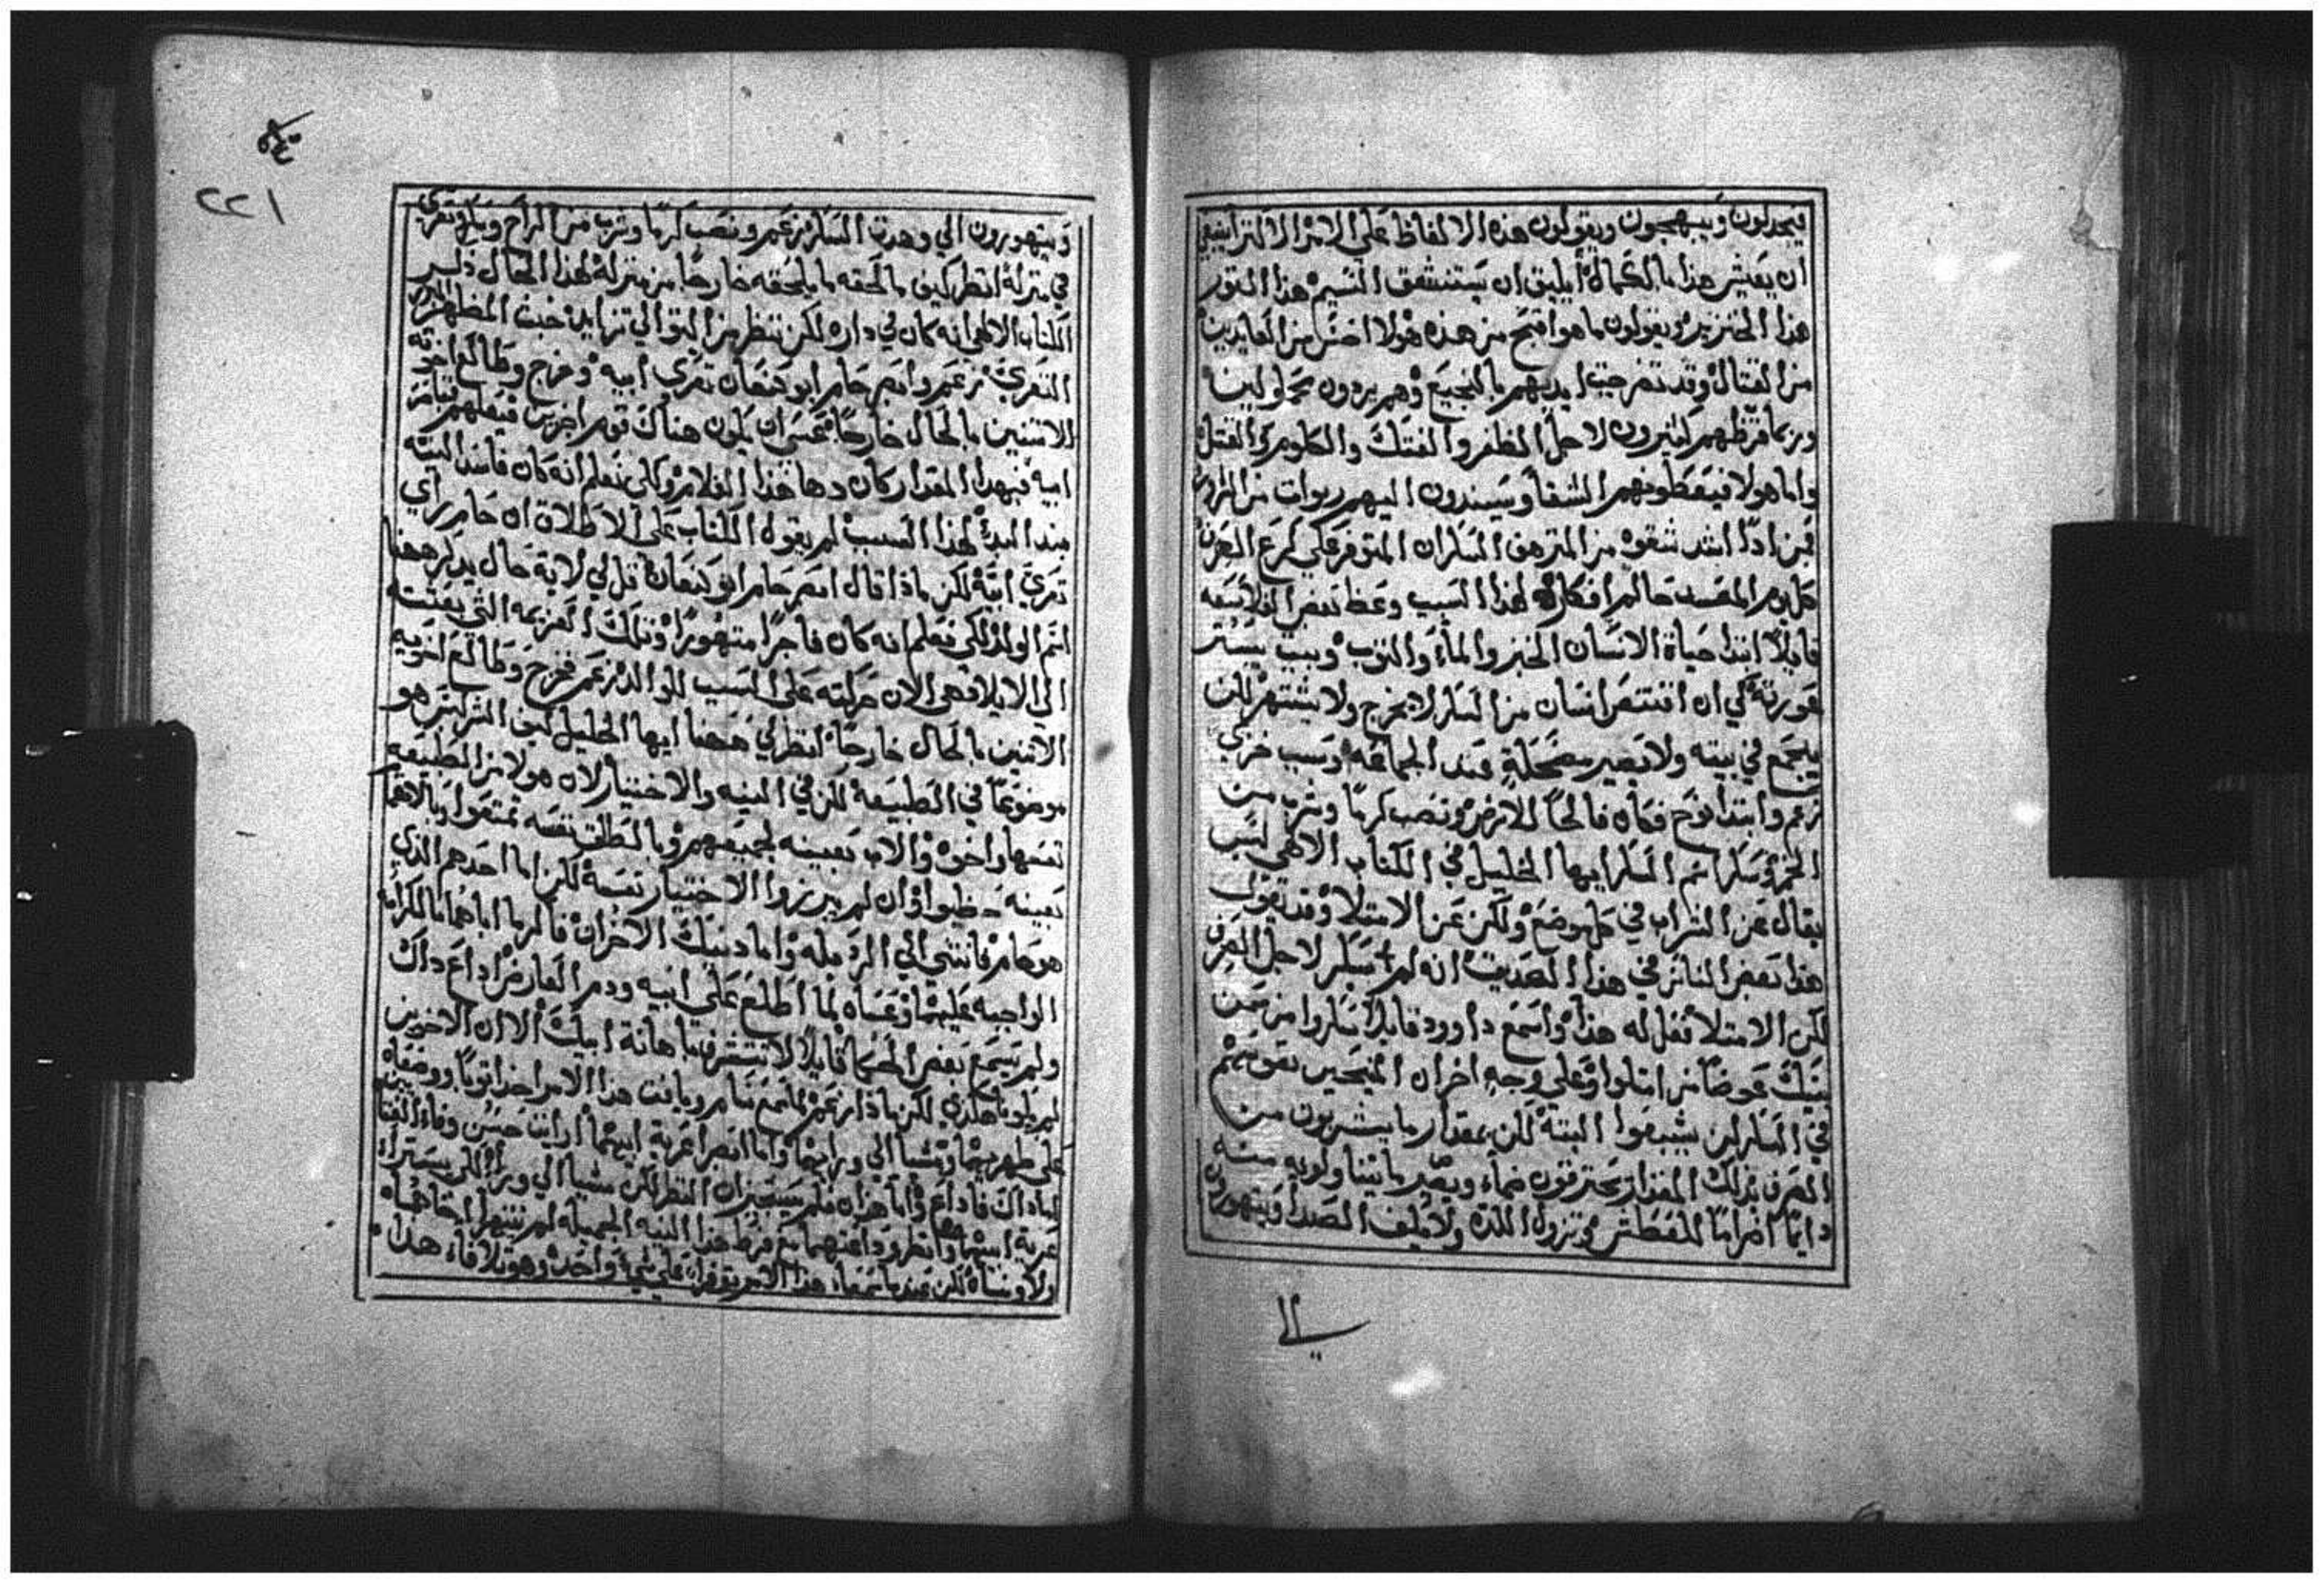 فيجدلون ويبهجون ويقولون هذه الالفاظ على الامر الاكثر اينبغي
ان يعيش هذا بالكمال أيليق ان يستنشق النسيم هذا التور
هذا الخنزير ويقولون ما هو اقبح من هذه هولا اخسر من العايدين
من القتال وقد تضرجت ايديهم بالنجيع وهم يردون محمولين
وربما قرظهم كثيرون لاجل الظفر والفتك والكلوم والقتل
واما هولا فيغطونهم الشقا ويسندون اليهم ربوات من الشرور
فمن اذًا اشد شقوه من المترهق السكران المتوفر على كرع الصرف
كل يوم المفسد حاكم افكاره لهذا السبب وعظ بعض الفلاسفه
قايلًا ابتدا حياة الانسان الخبز والماء والثوب وبيت يستر
عورته كي ان افتتص انسان من السكر لا يخرج ولا يشتهر لكن
يجمع في بيته ولا يصير مضحكة عند الجماعه وسبب خزي
زعم وابتدأ نوح فكان فالحًا للارض ونصب كرمًا وشرب من
الخمر وسكر اسم السكر ايها الخليل في الكتاب الالاهي ليس
يقال عن الشراب في كل موضع ولكن عن الامتلا وقد تقول
هذا بعض الناس في هذا الصديق انه لم يسكر لاجل الصرف
لكن الامتلا نقل له هذا واسمع داوود قايلا سكروا من سمن
بيتك عوضًا من امتلوا وعلى وجه اخر ان المنحين نفوسهم
في السكر لن يشبعوا البتة لكن بمقدار ما يشربون من
الصرف بذلك المقدار يحترقون ضماء ويصير ما يتناولونه منه
دايمًا اضرامًا للعطش وتزول اللذة ولا يكف الصدا ويتهورون
الي
٢٢١
ويتهورون الي وهدة السكر زعم ونصب كرمًا وشرب من الراح وسكر وتعرى
في منزله انظر كيف ما لحقه ما يلحقه خارجًا من منزله لهذا الحال ذكر
الكتاب الالاهي انه كان في داره لكن تنظر من التوالي تزايد خبث المظهر
التعري زعم وابصر حام ابو كنعان تعري ابيه وخرج وطالع اخوته
الاثنين بالحال خارجًا عسى ان يكون هناك قوم اخرين فيعلهم
ابيه فبهذا المقدار كان دها هذا الغلام ولكي نعلم انه كان فاسدا البتة
منذ البدء لهذا السبب لم يقول الكتاب على الاطلاق ان حام راي
تعري ابيه لكن ماذا قال ابصر حام ابو كنعان قل لي لاية حال يذكر ههنا
اسم الولد لكي نعلم انه كان فاجرًا متهورًا وتلك العزيمه التي بعثته
الي الايلاد هى الان حركته على السب للوالد زعم فخرج وطالع اخويه
الاثنين بالحال خارجًا انظر لي ههنا ايها الخليل ليس الشر ليس هو
موضوعًا في الطبيعه لكن في النيه والاختيار لان هولا من الطبيعه
نفسها واخوه والاب بعينه لجميعهم وبالطلق نفسه تمتعوا وبالاهتمام
بعينه حظيوا وان لم يبرزوا الاختيار نفسه لكن اما احدهم الذي
هو حام فانثني الي الرذيله واما دنيك الاخران فاكرما اباهما بالكرامة
الواجبه عليهما وعساه لما اطلع على ابيه ودم العارض اذاع ذاك
ولم يسمع بعض الحكما قايلًا لا تتشرف باهانة ابيك الا ان الاخوين
لم يكونا هكذي لكن ماذا زعم لما سمع سام ويافت هذا الامر اخذا ثوبًا ووضعاه
على ظهريهما ومشيا الي ورايهما واما ابصرا عرية ابيهما ارأيت حسن وفاء الفتا
اما ذاك فاداع واما هذان فلم يستجيزان النظر لكن مشيا الي ورا لكي يسترا
عرية ابيهما وانظر وداعتهما مع فرط هذا النيه الجميله لم ينتهرا اخاهما
ولا ونساه لكن عندما سمعاه هذا الامر توفرا على شيء واحد وهو تلافاء هذا